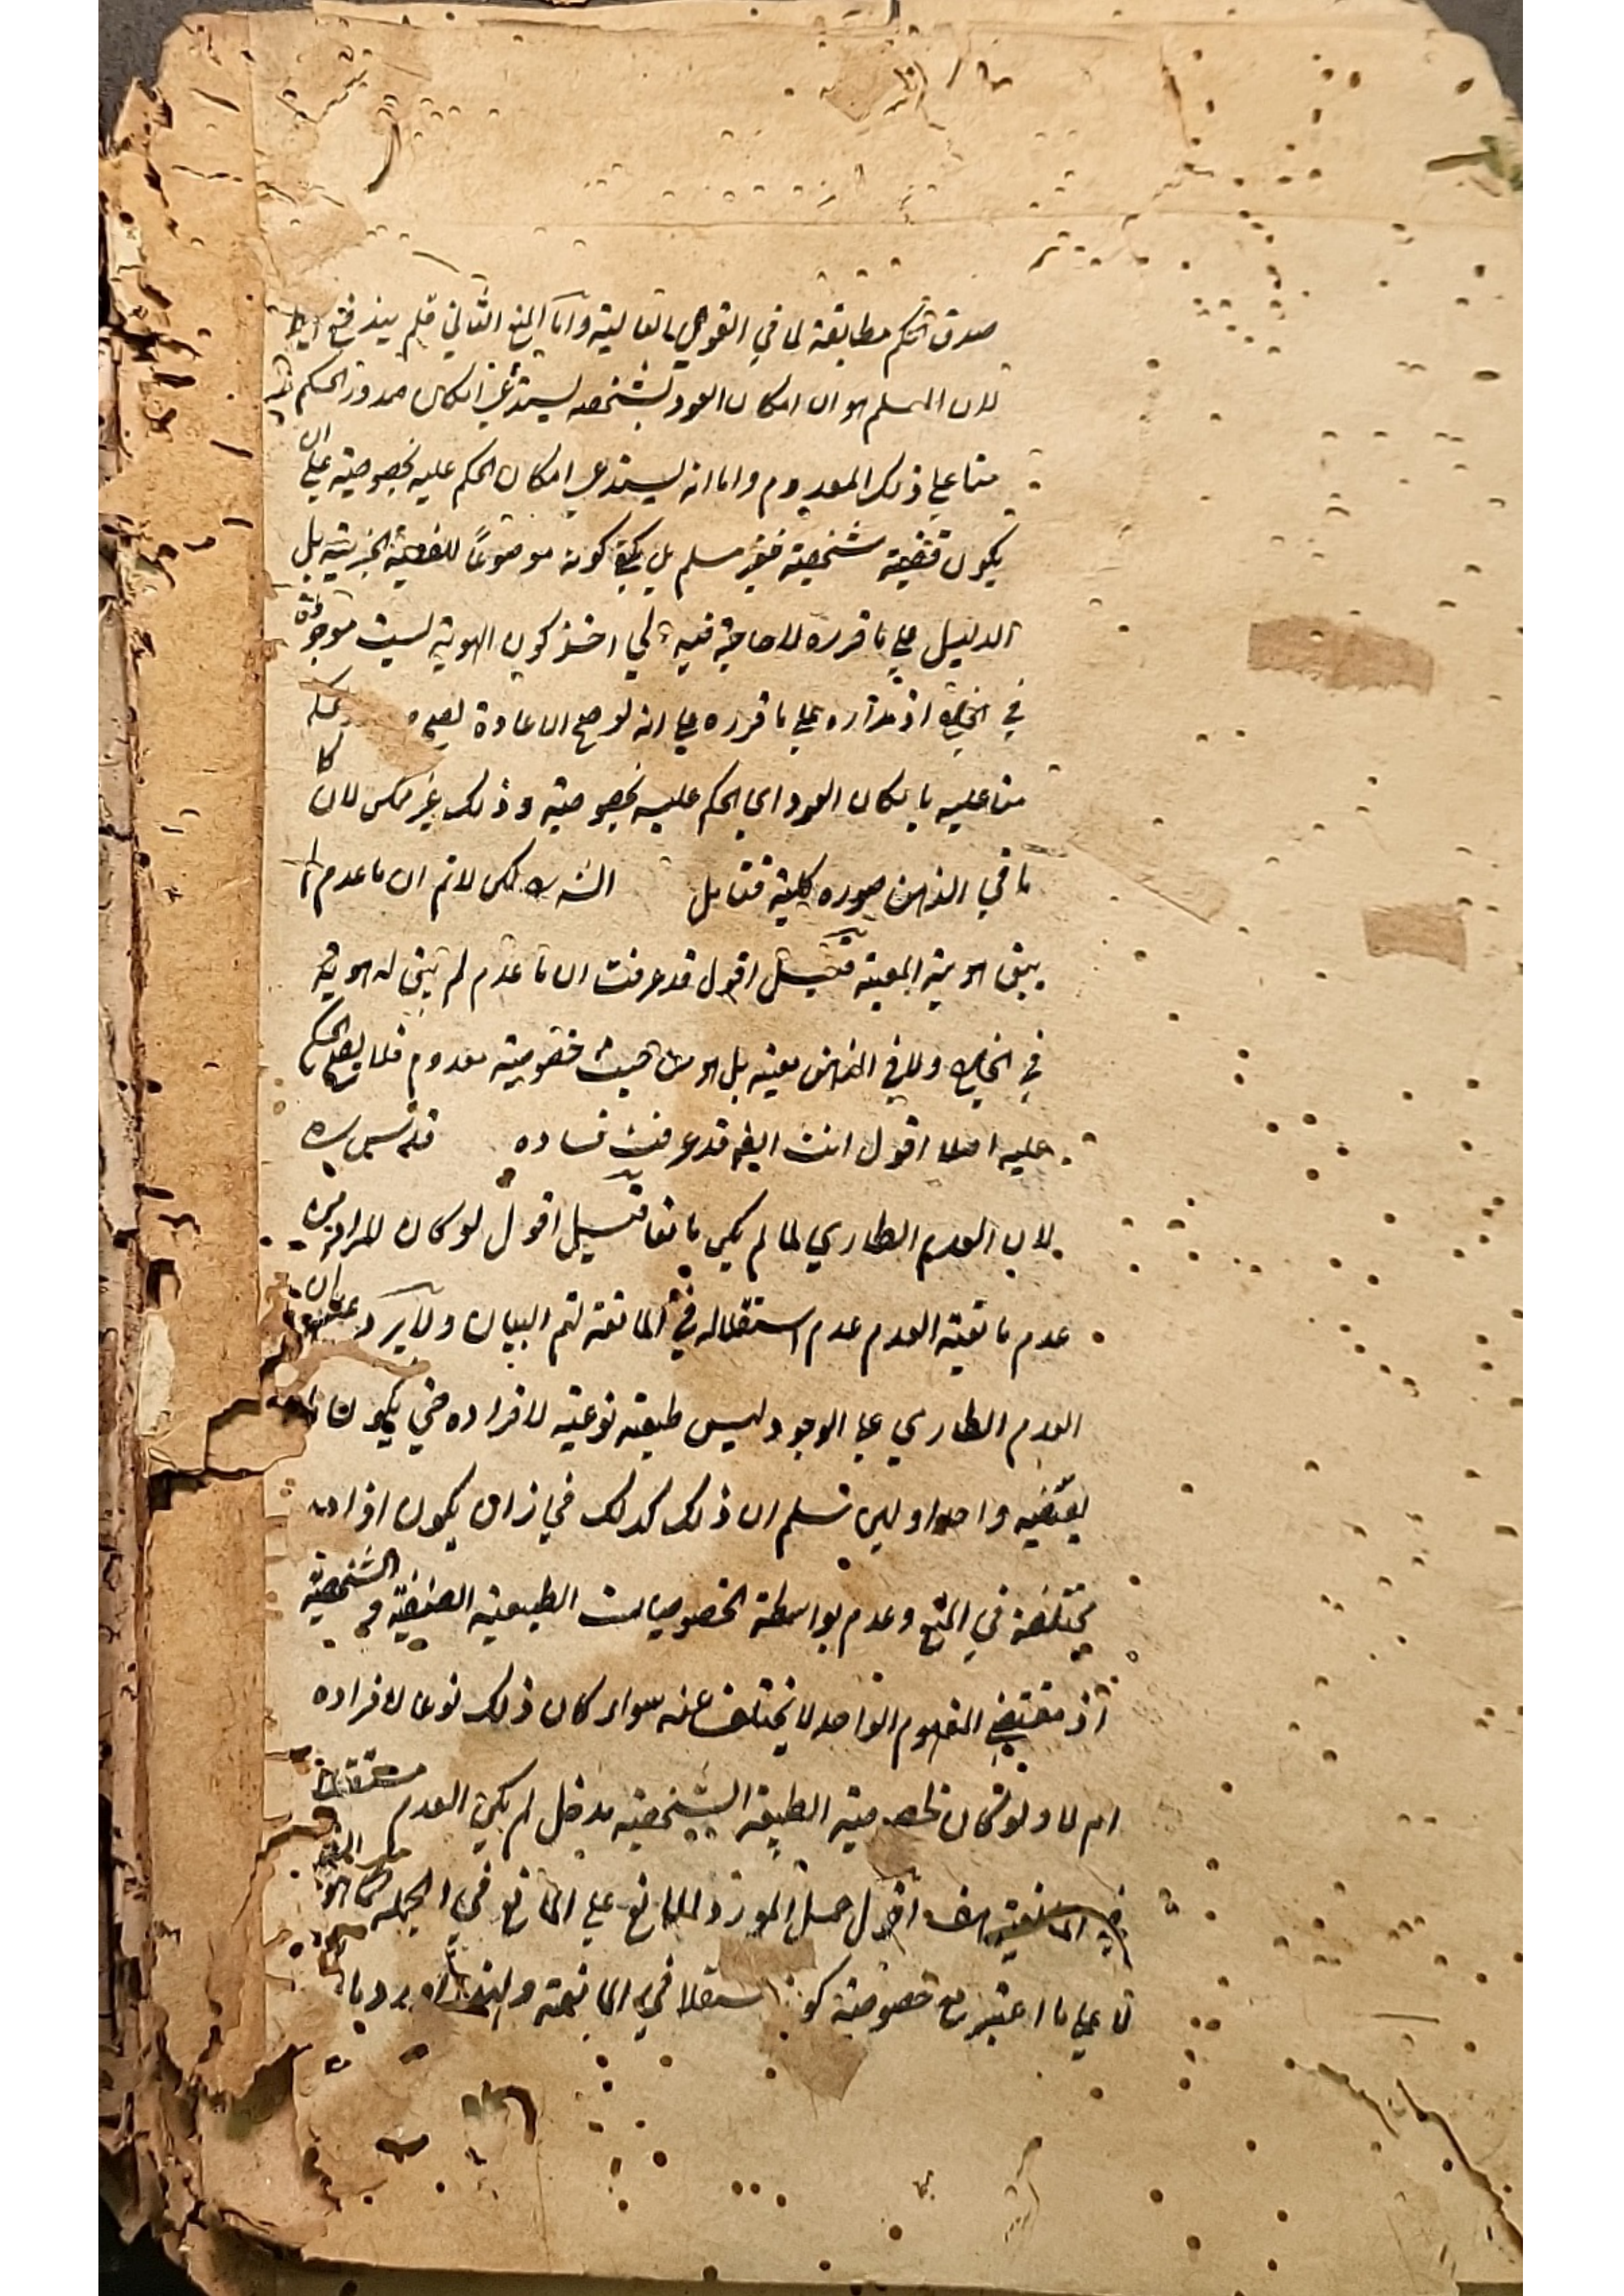 صدق الحكم مطابقة لما في القوي العالية واما المنع الثاني فلم يندفع ايضا
لان المسلم هو ان امكان العود بشخصه يستدعي امكان صدور الحكم
منا علي ذلك المعدوم واما انه يستدعي امكان الحكم عليه بخصوصيته علي ان
يكون قضية شخصية فغير مسلم بل يكفي كونه موضوعا للقضية الجزئية بل
الدليل علي ما قرره لا حاجة فيه الي اخذ كون الهوية ليست موجودة
في الخارج اذ مداره علي ما قرره علي انه لو صح الاعادة لصح
منا عليه بامكان العود اي الحكم عليه بخصوصيته وذلك غير ممكن لان كل
ما في الذهن صورة كلية فتامل الشرح لكن لانم ان ما عدم
يبق هويته المعينة قيل اقول قد عرفت ان ما عدم لم يبق له هوية
في الخارج ولا في الذهن بعينه بل هو من حيث خصوصيته معدوم فلا يصح الحكم
عليه اصلا اقول انت ايضا قد عرفت فساده قدس سره
لان العدم الطاري لما لم يكن مانعا قيل اقول لو كان المراد من
عدم مانعية العدم عدم استقلاله في المانعة لتم البيان ولا يرد ان
العدم الطاري علي الوجود ليس طبيعة نوعية لافراده حتي يكون ما
يقتضيه واحدا ولئن سلم ان ذلك كذلك في زان يكون افراده
مختلفة في المنع وعدم بواسطة الخصوصيات الطبيعية الصنفية و الشخصية
اذ مقتضي المفهوم الواحد لا يختلف عنه سواء كان ذلك نوعا لافراده
ام لا ولو كان لخصوصية الطبيعة الشخصية مدخل لم يكن العدم مستقلا
في المانعية هف اقول حمل المورد المانع علي المانع في الجملة
لا علي ما اعتبر مع خصوصية كونه مستقلا في المانعة ولهذا اورد